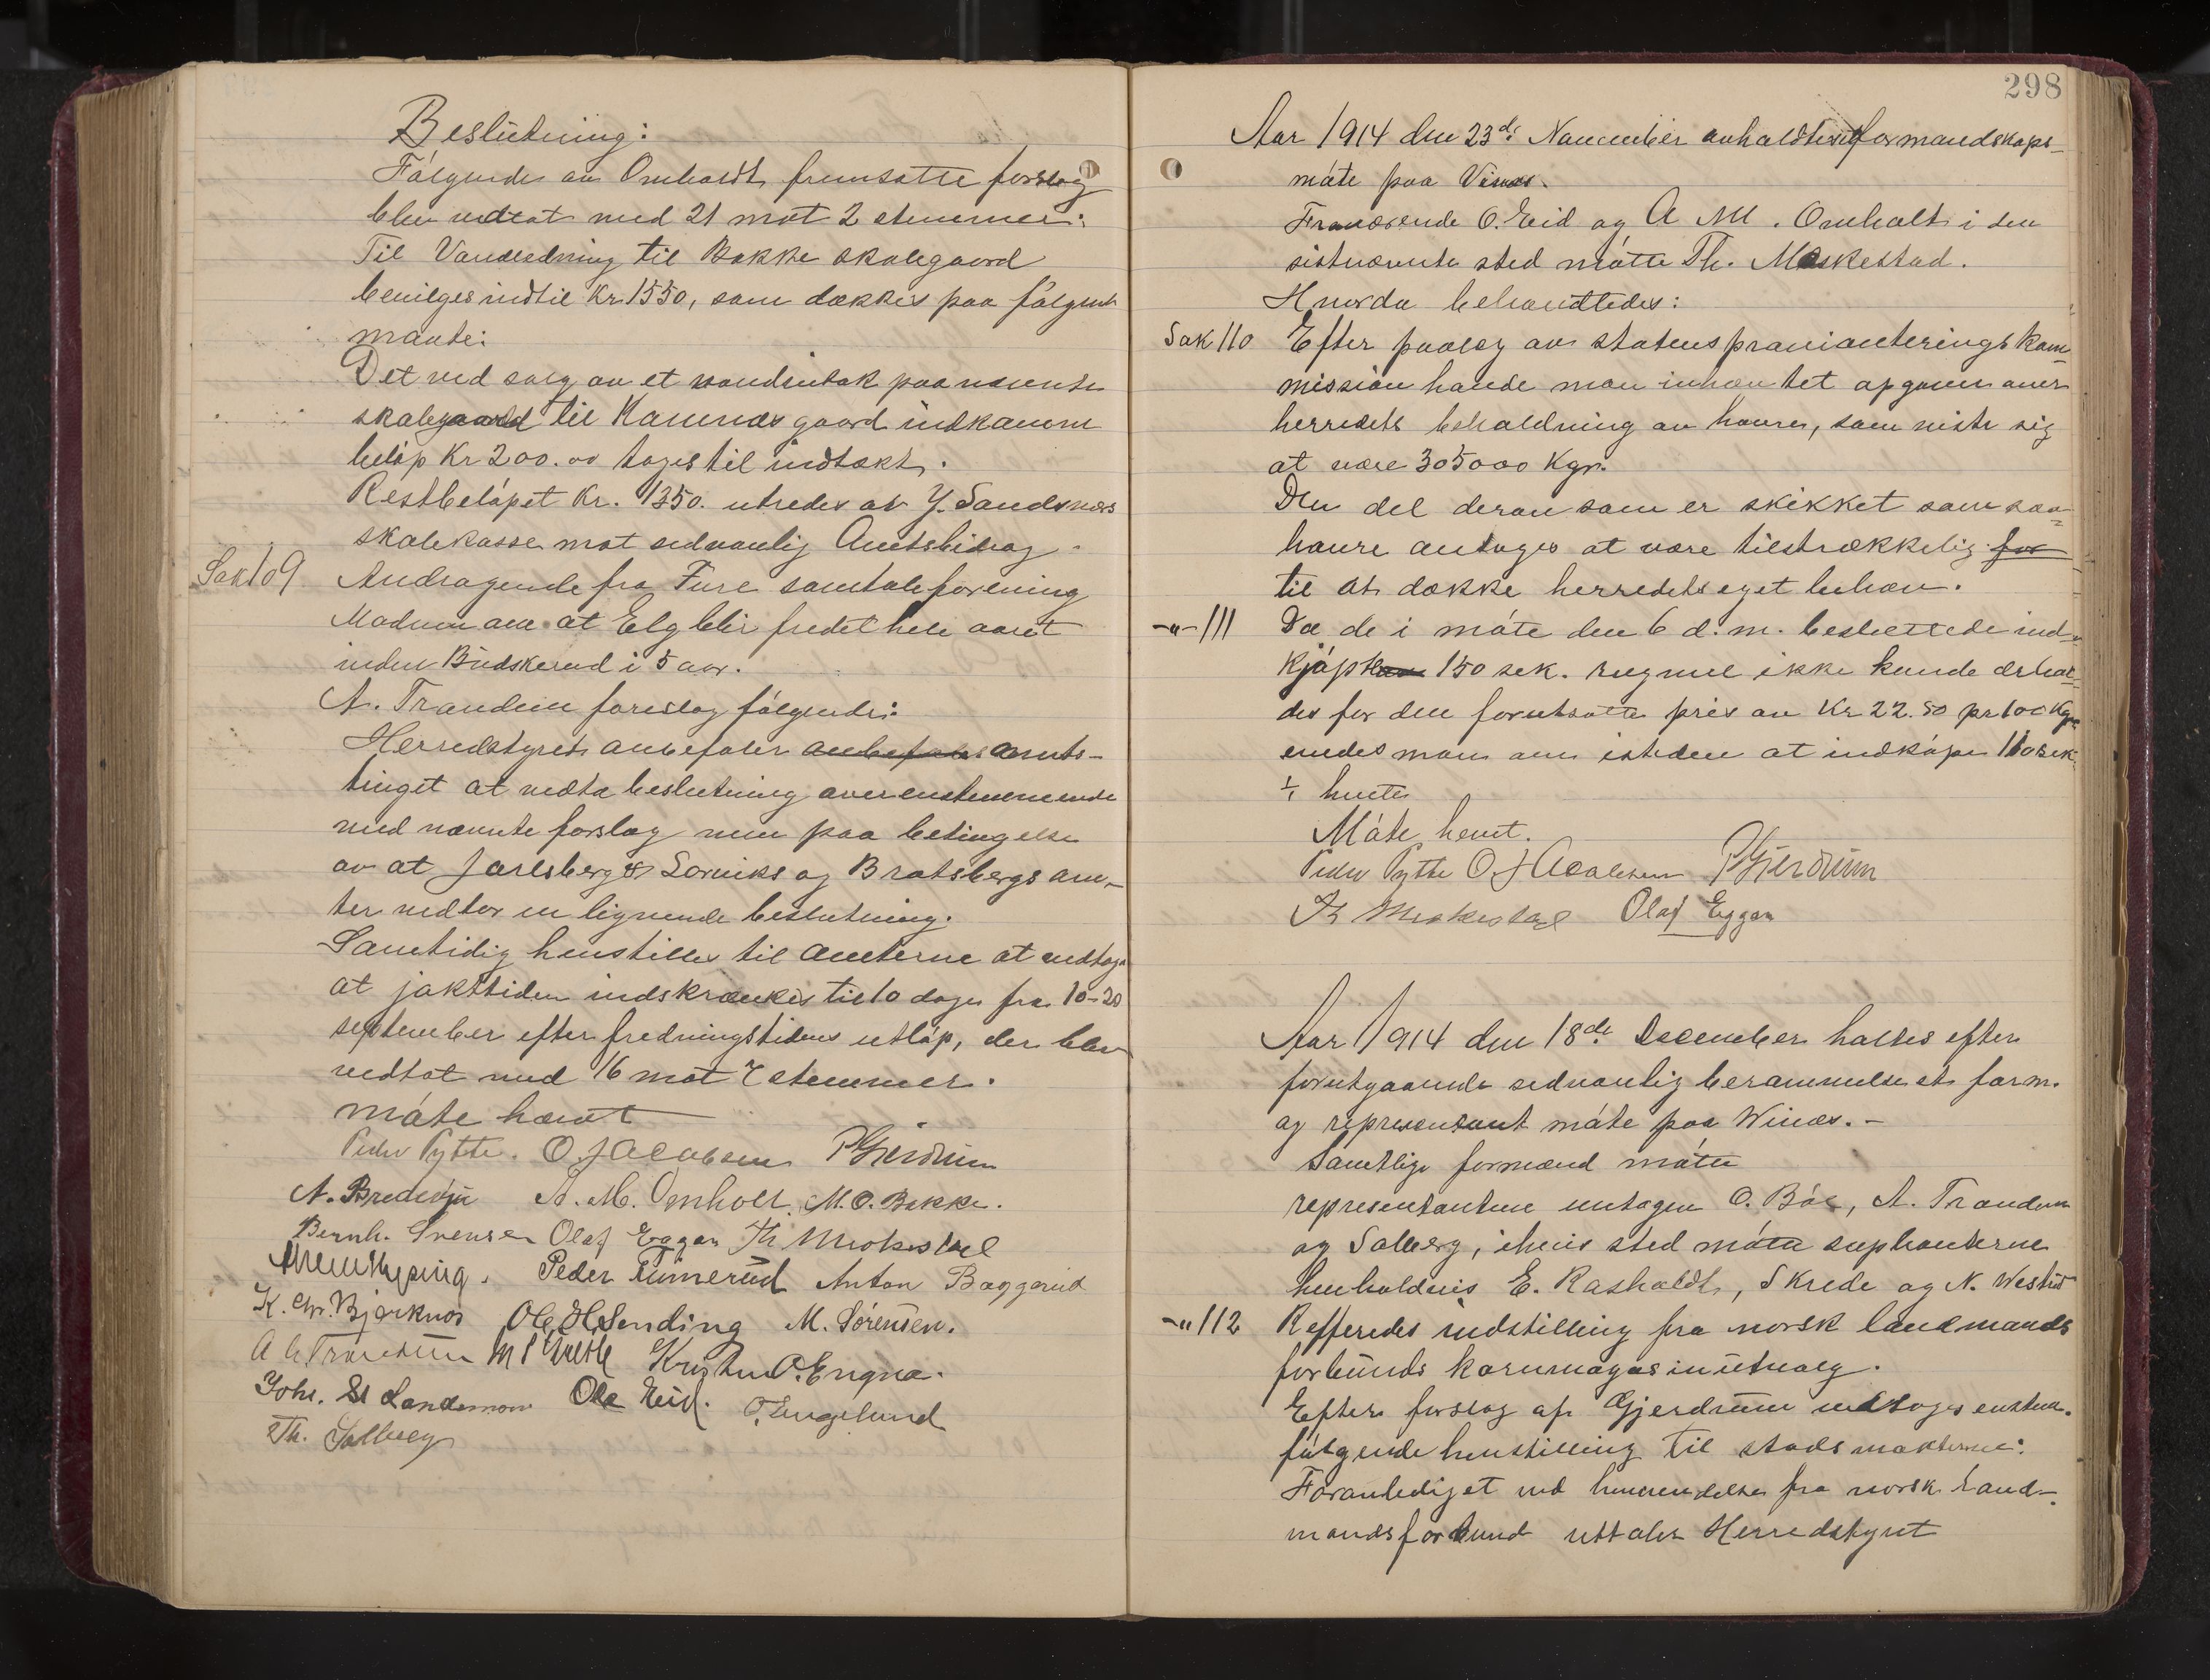 Beslutning:
Følgende av Omholdt fremsatte forslag
blev vedtat med 21 mot 2 stemmer:
Til Vandledning til Bakke skolegaard
bevilges indtil Kr. 1550, som dækkes paa følgende
maate:
Det ved salg av et vandintak paa nævnte
skolegaard til Komnæs gaard indkomm
beløp Kr 200.00 tages til indtækt.
Restbeløpet Kr. 1350. utredes av Y. Sandsvær
skolekasse mot sedvanlig Amtsbidrag.
Sak 109 Andragende fra Fure samtaleforening
Modum om at Elg blir fredet hele aaret
inden Buskerud i 5 aar.
A. Trandem foreslog følgende:
Herredstyret anbefaler anbefaler amts-
tinget at vedta beslutning overensstemmende
med nævnte forslag men paa betingelse
av at Jarlsberg & Larviks og Bratsbergs am-
ter vedtar en lignende beslutning.
Samtidig henstilles til amterne at vedtage
at jakttiden indskrænkes til 10 dage fra 10-20
september efter fredningstidens utløp, der blev
vedtat med 16 mot 7 stemmer.
Møte hævet
Peder Pytte. O. J Jacobsen P Gjerdrum
A. M. Omholt. M. O. Bakke.
Bernh. Svensen Olaf Eggar Th Moskestad
Peder Tømerud Anton Baggerud
K. Chr. Bjørknes Ole H Sending M. Sørensen.
Kristen O. Engna.
Johs. Landsman Ole Eid. O. Engelund
Th. Solberg
298
Aar 1914 den 23de November avholdtes formandskaps-
møte paa Vinæs.
Fraværende O. Eid og A M. Omholt i den
sistnævnte sted møtte Th. Moskestad.
Hvorda behandledes:
Sak 110 Efter paalæg av statens provianteringskom-
mission havde man inhæntet opgaver over
herredets beholdning av havre, som viste sig
at være 305000 Kgr.
Den del derav som er skikket som saa-
havre antages at være tilstrækkelig for
til at dække herredets eget behov.
-"- 111 Da de i møte den 6 d. m. besluttede ind-
kjøp 150 sek. rugmel ikke kunde erhol-
des for den forutsatte pris av Kr 22.50 pr 100 Kgr
enedes man om isteden at indkøpe 110 sek
1/1 hvete
Møte hevet.
Peder Pytte O J Jacobsen P Gjerdrum
Th Moskestad Olaf Eggar
Aar 1914 den 18de December holtes efter
forutgaaende sedvanlig berammelse et form.
og representant møte paa Winæs. -
Samtlige formænd møtte
representantene untagen O. Bøe, A. Trandem
og Solberg, i hvis sted møtte suplianterne
henholdsvis E. Rasholdt, Skrede og N. Westad
-"- 112 Refferedes indstilling fra norsk landmands
forbunds kornmagasinutvalg.
Efter forslag af Gjerdrum vedtoges enstem.
følgende henstilling til stadsmakterne:
Foranlediget ved henvendelse fra norsk Land-
mandsforbund uttaler Herredstyret